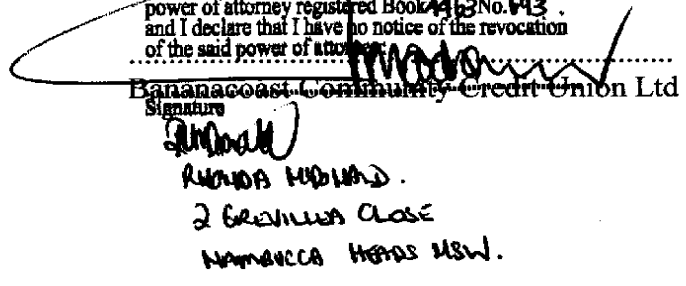 power of attorney registered Book 4463 No. 693 .
and I declare that I have no notice of the revocation
of the said power of attorney.
Bananacoast Community Credit Union Ltd
Signature
RHONDA McDONALD.
2 GREVILLEA CLOSE
NAMBUCCA HEADS NSW.